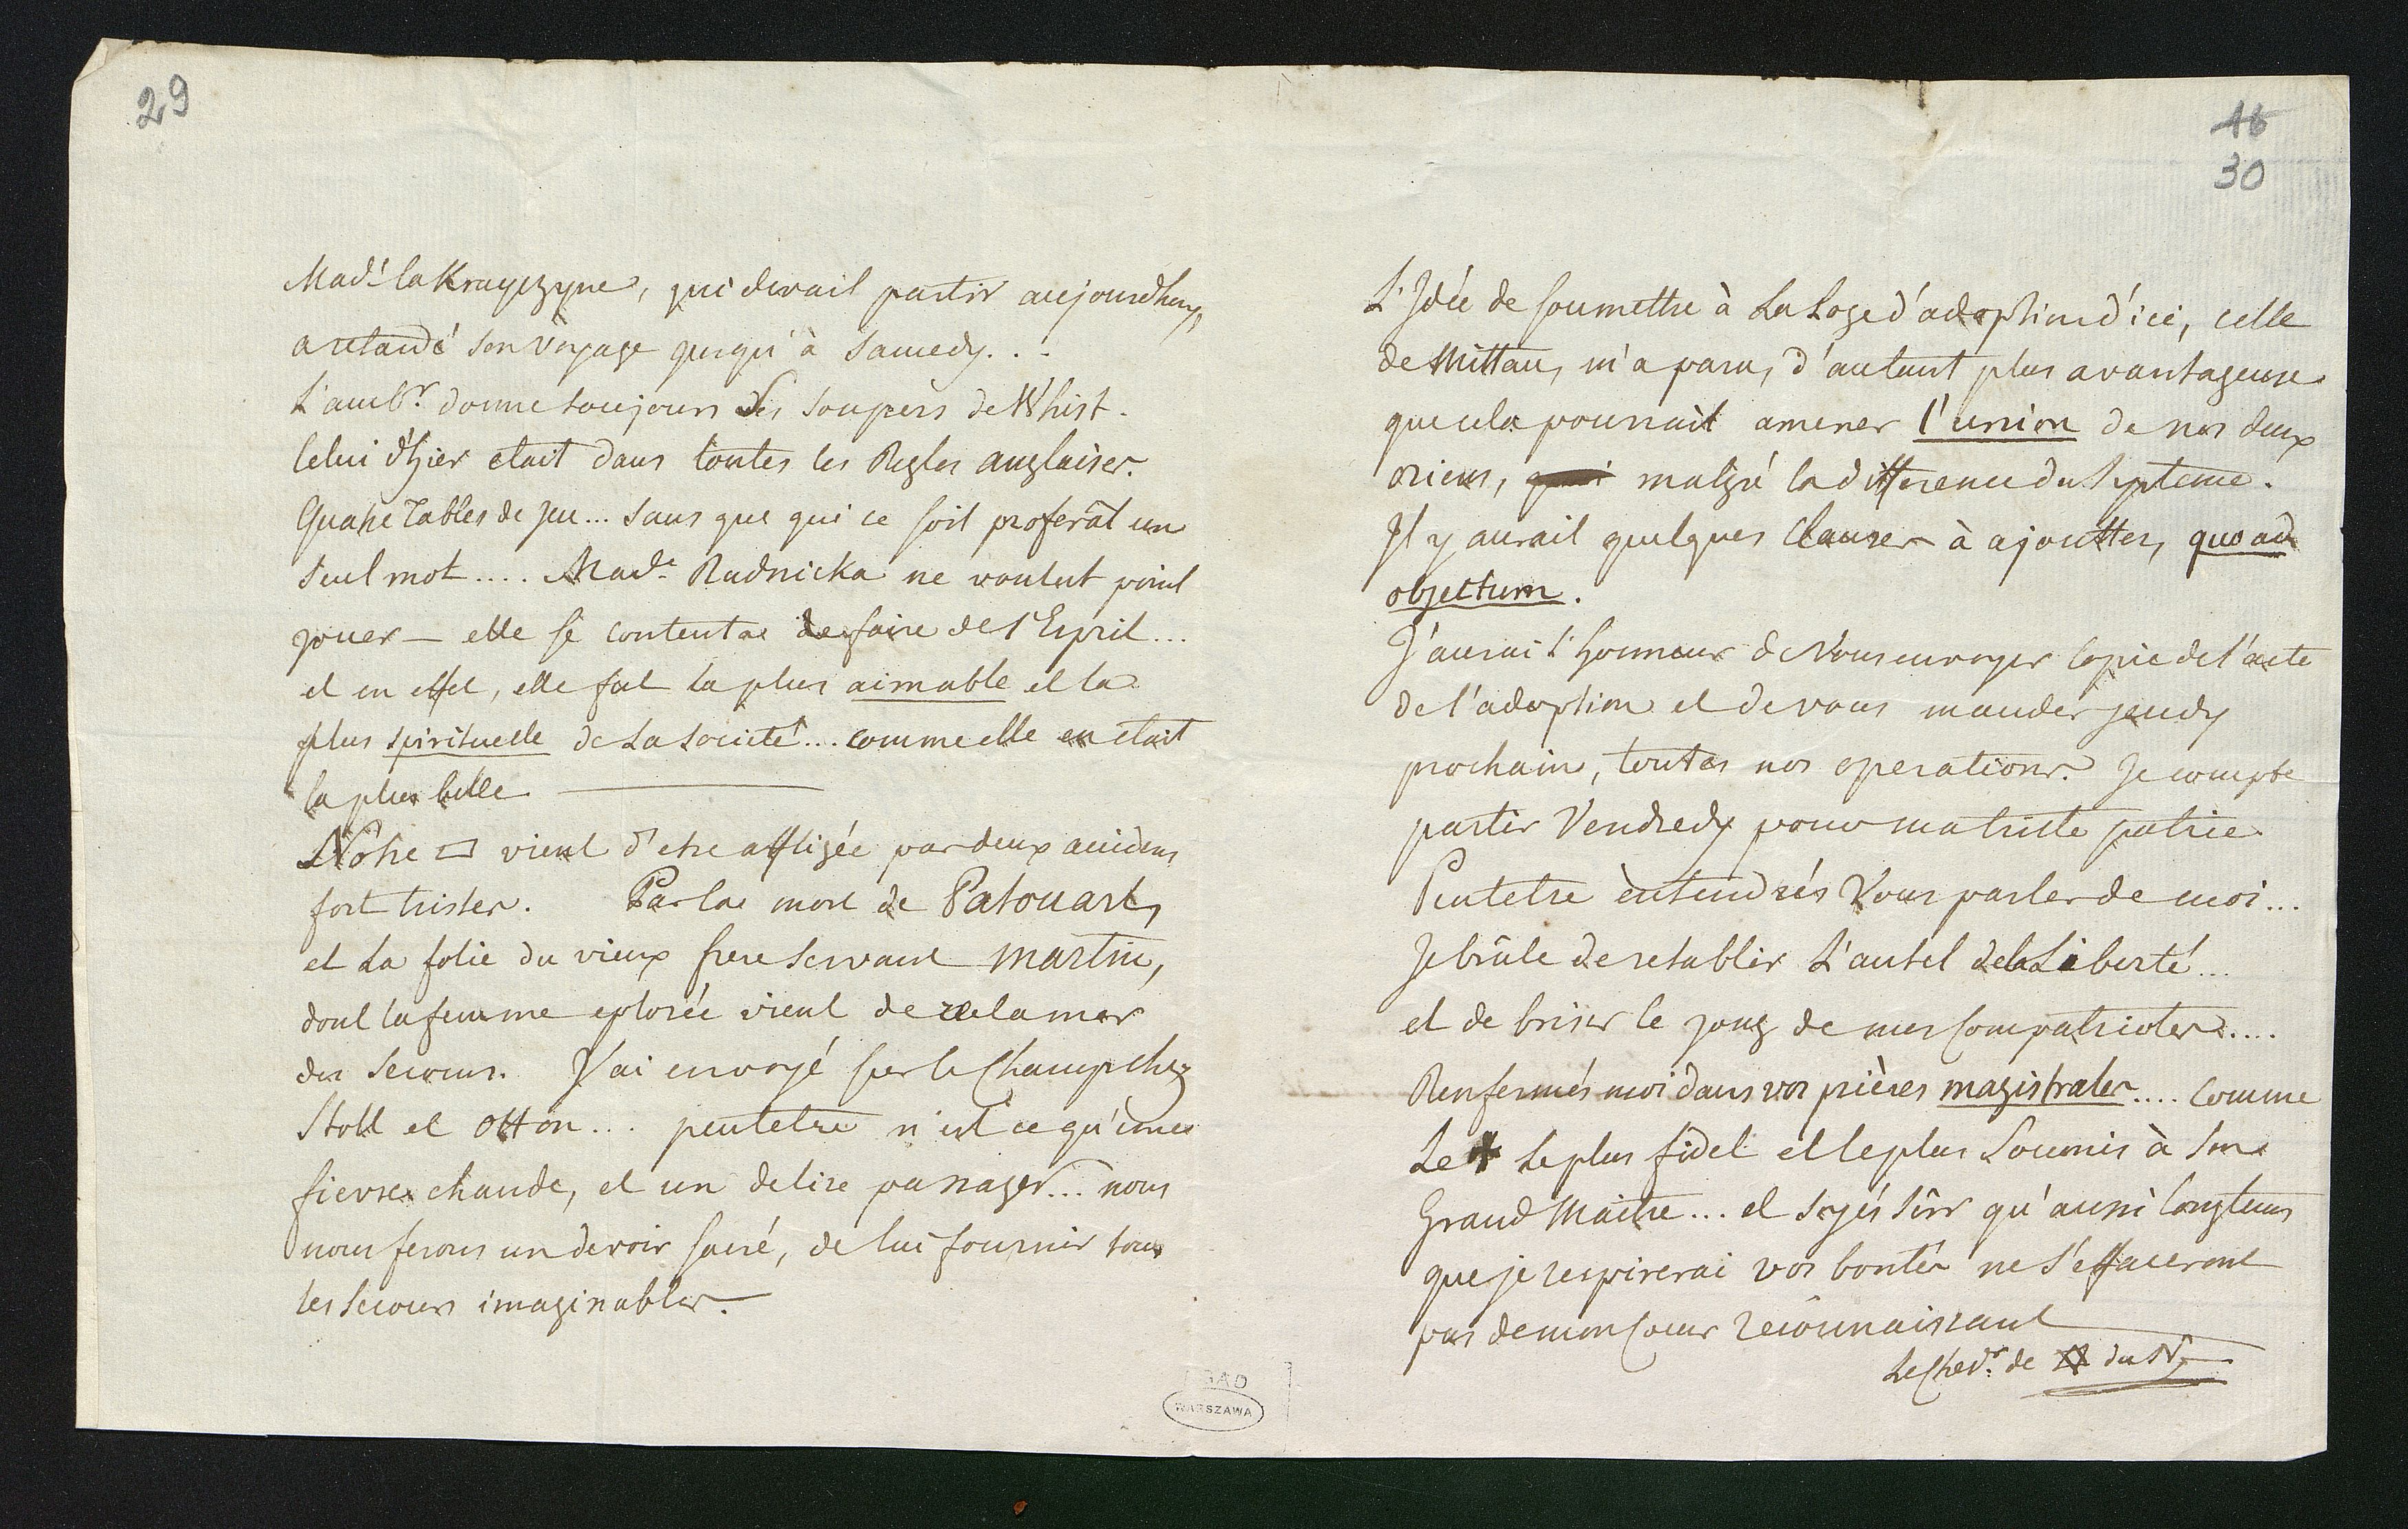 29
Mad.e la Krayczyne, qui devait partir aujourdhuy,
a retardé son voyage jusqu'à Samedy...
L'amb.r donne toujours des soupers de Whist.
Celui d'hier etait dans toutes les Regles anglaises.
Quatre Tables de jeu... sans que qui ce soit proferât un
seul mot.... Mad.e Rudnicka ne voulut point
jouer — elle se contenta de faire de l'Esprit...
et en effet, elle fut la plus aimable et la
plus spirituelle de La Societé... comme elle en etait
la plus belle ———
Nôtre ▭ vient d'etre affligée par deux accidens
fort tristes. Par la mort de Patouart,
et La folie du vieux frere servant Martin,
dont la femme eplorée vient de reclamer
des secours. J'ai envoyé sur le Champ chez
Stoll et Otton... peutetre n'est ce qu'une
fievre chaude, et un delire passager... nous
nous ferons un devoir sacré, de lui fournir tous
les secours imaginables.
AGAD
WARSZAWA
16
30
L'Idée de soumettre à La Loge d'adoption d'ici, celle
de Mittau, m'a paru, d'autant plus avantageuse
que cela pourrait amener l'union de nos deux
oriens, qui malgré la difference du Systeme.
Il y aurait quelques Clauses à ajoutter, quo ad
objectum.
J'aurai l'honneur de Vous envoyer Copie de l'acte
de l'adoption et de vous mander jeudy
prochain, toutes nos operations. Je compte
partir Vendredy pour ma triste patrie
Peutetre entendrés Vous parler de moi...
Je brûle de retablir L'autel de la Liberté...
et de briser le joug de mes Compatriotes....
Renfermés moi dans vos prières magistrales.... comme
Le ✝ le plus fidel et le plus Soumis à son
Grand Maitre... et soyés sûr qu'aussi longtems
que je respirerai vos bontés ne s'effaceront
pas de mon Coeur reconnaissant
Le Chev.r de ✡ du N.